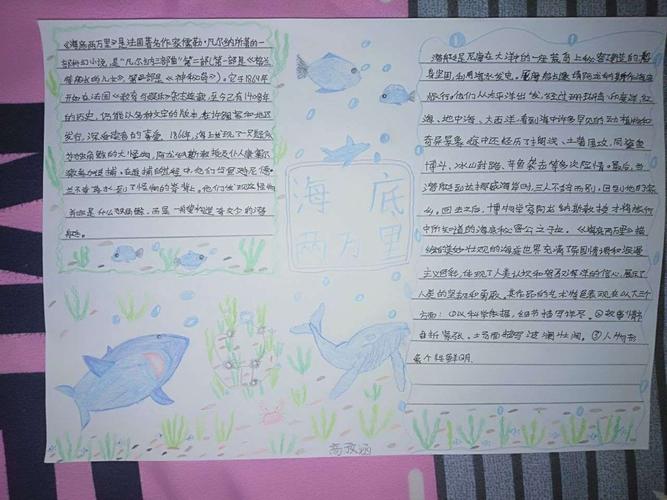 《海底两万里》是法国著名作家儒勒·凡尔纳所著的一
部科幻小说,是"凡尔纳三部曲"第二部(第一部是《格兰
特船长的儿女》第三部是《神秘岛》)。它于1869年
开始在法国《教育与娱乐》杂志连载,至今已有140多年
的历史,仍然以各种文字的版本在许多国家和地区
发行,深受读者的喜爱。1866年,海上发现了一只疑似
为独角鲸的大怪物,阿龙纳斯教授及仆人康塞尔
受邀参加追捕。在追捕过程中,他们与鱼叉手尼德·
兰不幸落水,到了怪物的脊背上。他们发现这怪物
并非是什么独角鲸,而是一艘构造奇妙的潜
艇。
海底
两万里
潜艇是尼摩在大洋中的一座荒岛上秘密建造的,船
身坚固,利用海水发电。尼摩船长邀请阿龙纳斯作海底
旅行。他们从太平洋出发,经过珊瑚岛、印度洋、红
海、地中海、大西洋,看到海中许多罕见的动植物和
奇异景象。途中还经历了搁浅、土著围攻、同鲨鱼
博斗、冰山封路、章鱼袭击等多次险情。最后,当
潜艇到达挪威海岸时,三人不辞而别,回到他的家
乡。回去之后,博物学家阿龙纳斯教授才将旅行
中所知道的海底秘密公之于世。《海底两万里》描
绘的美妙壮观的海底世界充满了异国情调和浪漫
主义色彩,体现了人类认识和驾驭海洋的信心,展示了
人类的坚毅和勇敢。其作品的艺术特色表现在以下三个
方面:①以科学依据,细节描写详尽。②故事情节
曲折紧张,场面描写波澜壮阔。③人物形
象个性鲜明